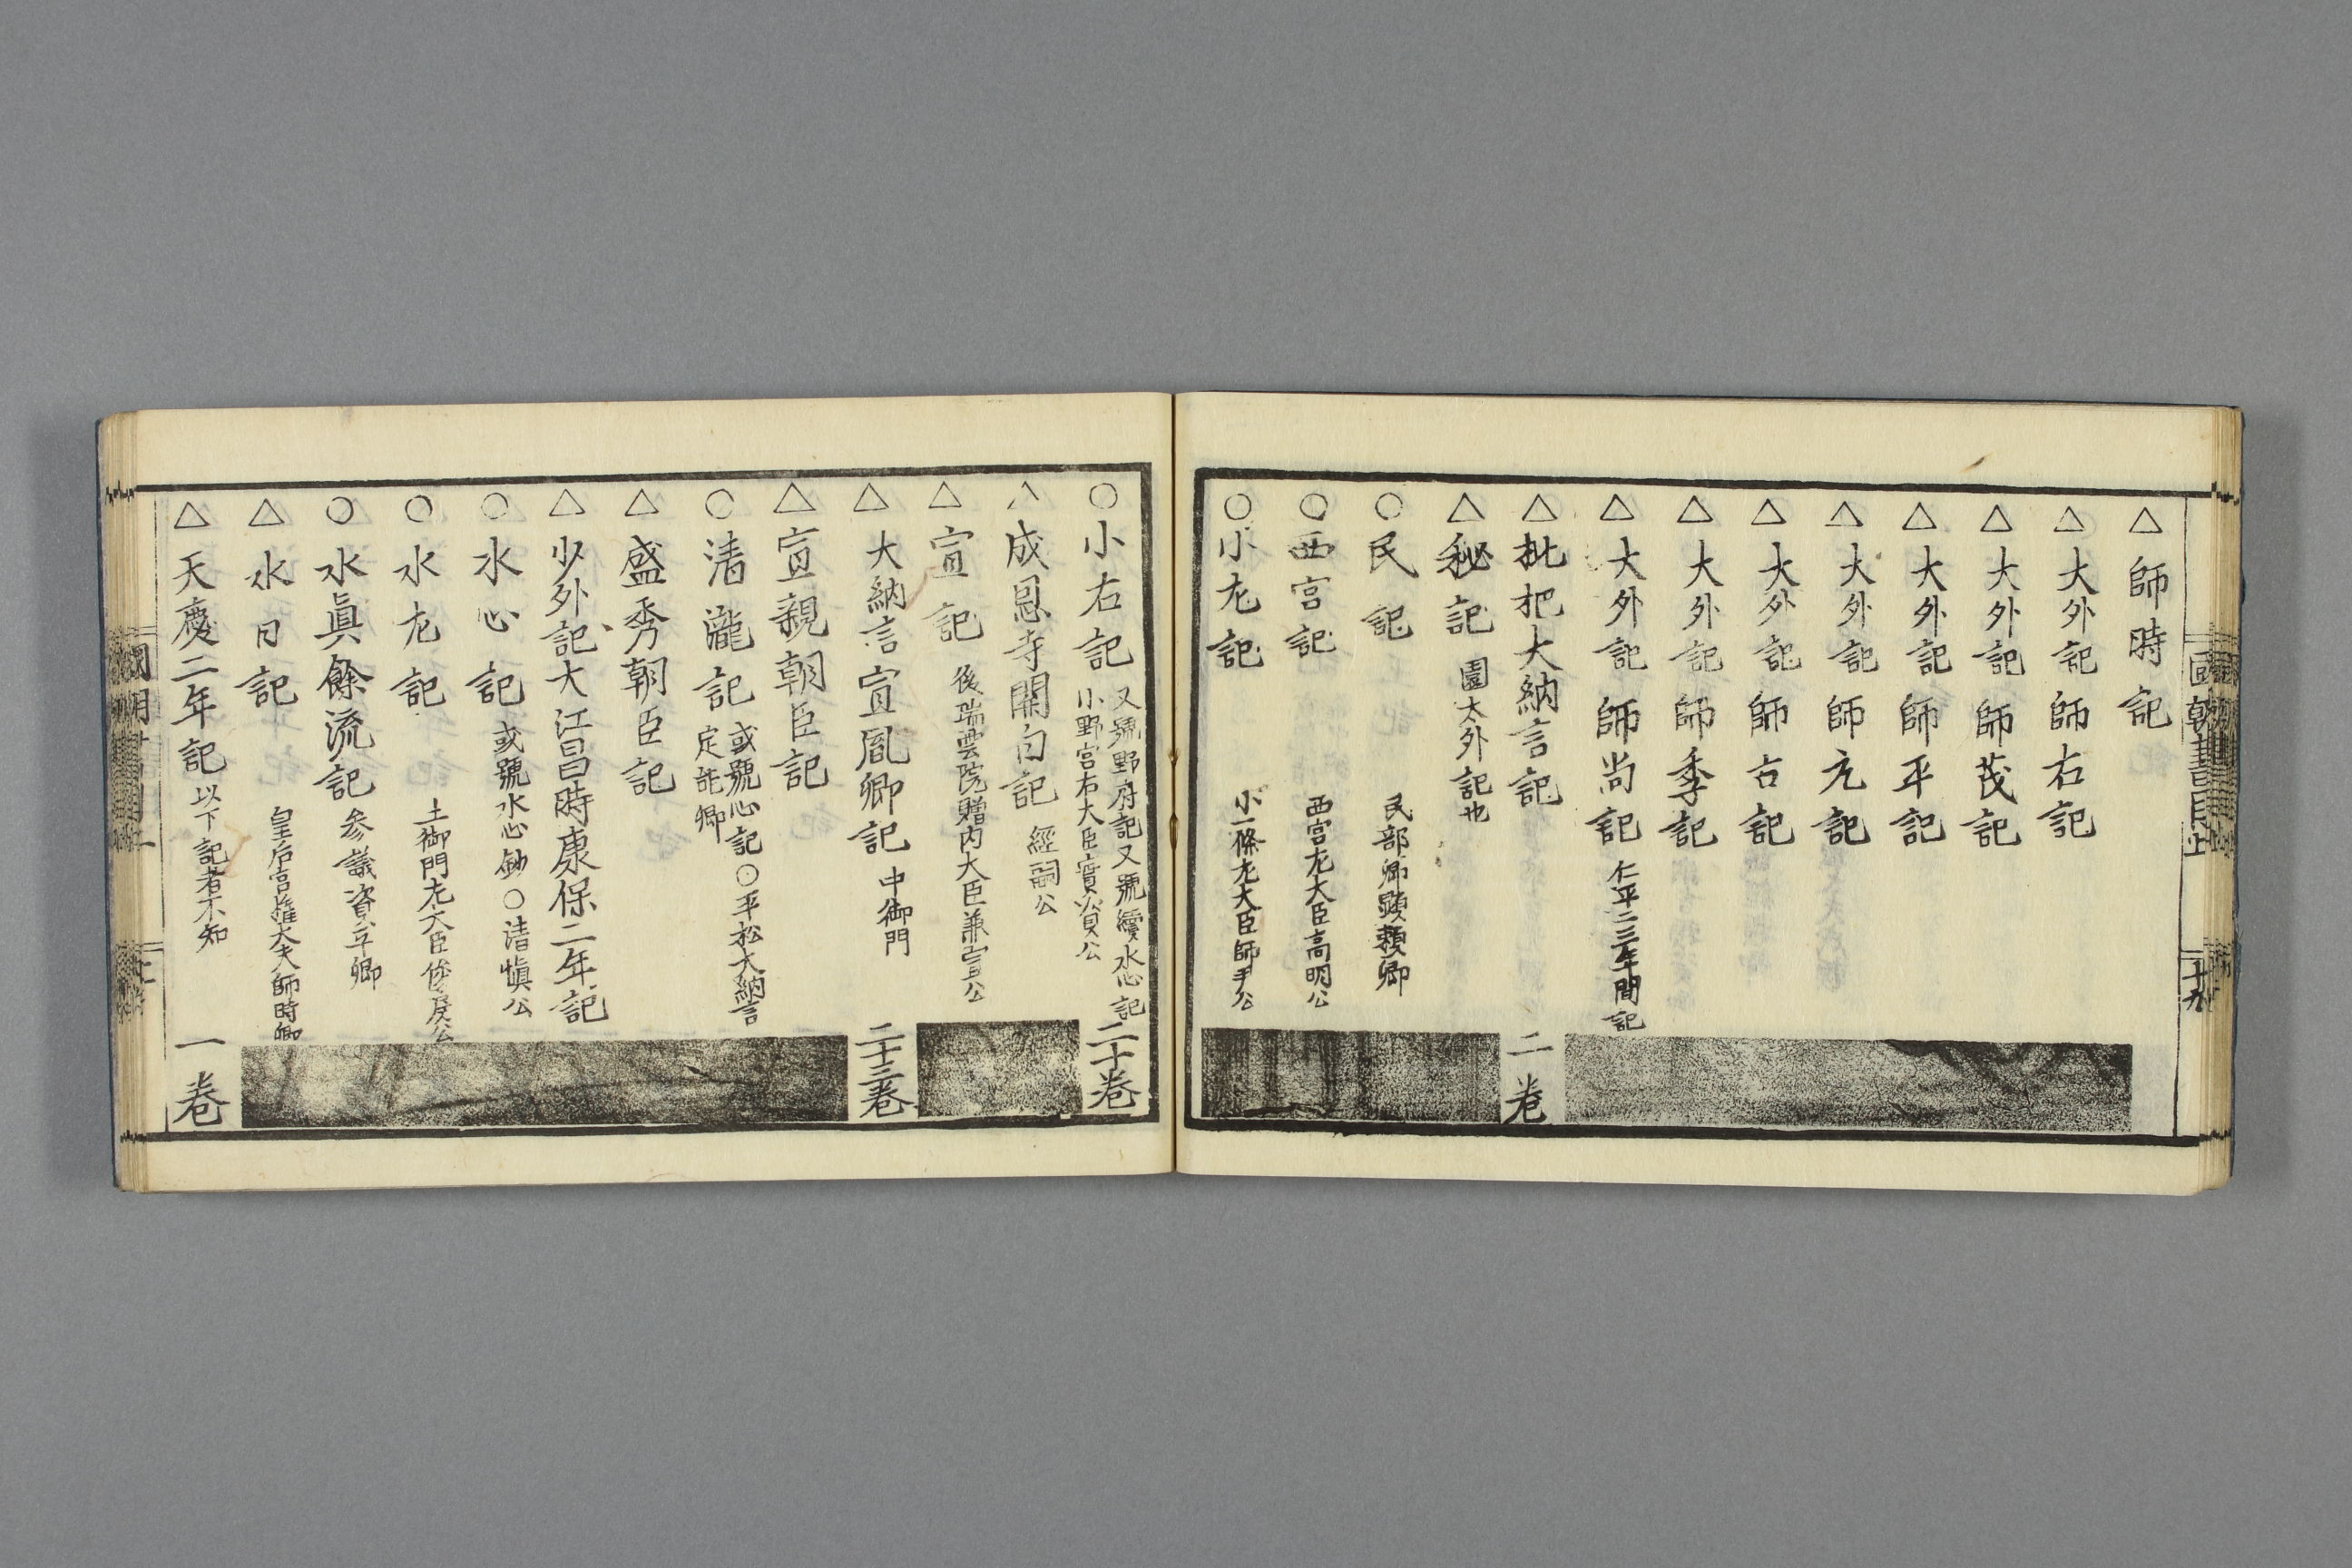 國朝書目 上
十九
△師時記
△大外記師右記
△大外記師茂記
△大外記師平記
△大外記師元記
△大外記師古記
△大外記師季記
△大外記師尚記 仁平二三年間記
△枇杷大納言記 二卷
△秘記 園大外記也
○民記 民部卿顯頼卿
○西宮記 西宮左大臣高明公
○小左記 小一條左大臣師尹公
○小右記 又號野府記又號續水心記
小野宮右大臣實資公 二十卷
成恩寺關白記 經嗣公
△宣記 後瑞雲院贈内大臣兼宣公
△大納言宣胤卿記 中御門 二十三卷
△宣親朝臣記
○清瀧記 或號心記○平松大納言
定記卿
△盛秀朝臣記
△少外記大江昌時康保二年記
○水心記 或號水心鈔○清愼公
○水左記 土御門左大臣俊房公
○水眞餘流記 参議資平卿
△水日記 皇后宮權大夫師時卿
△天慶二年記 以下記者不知 一卷